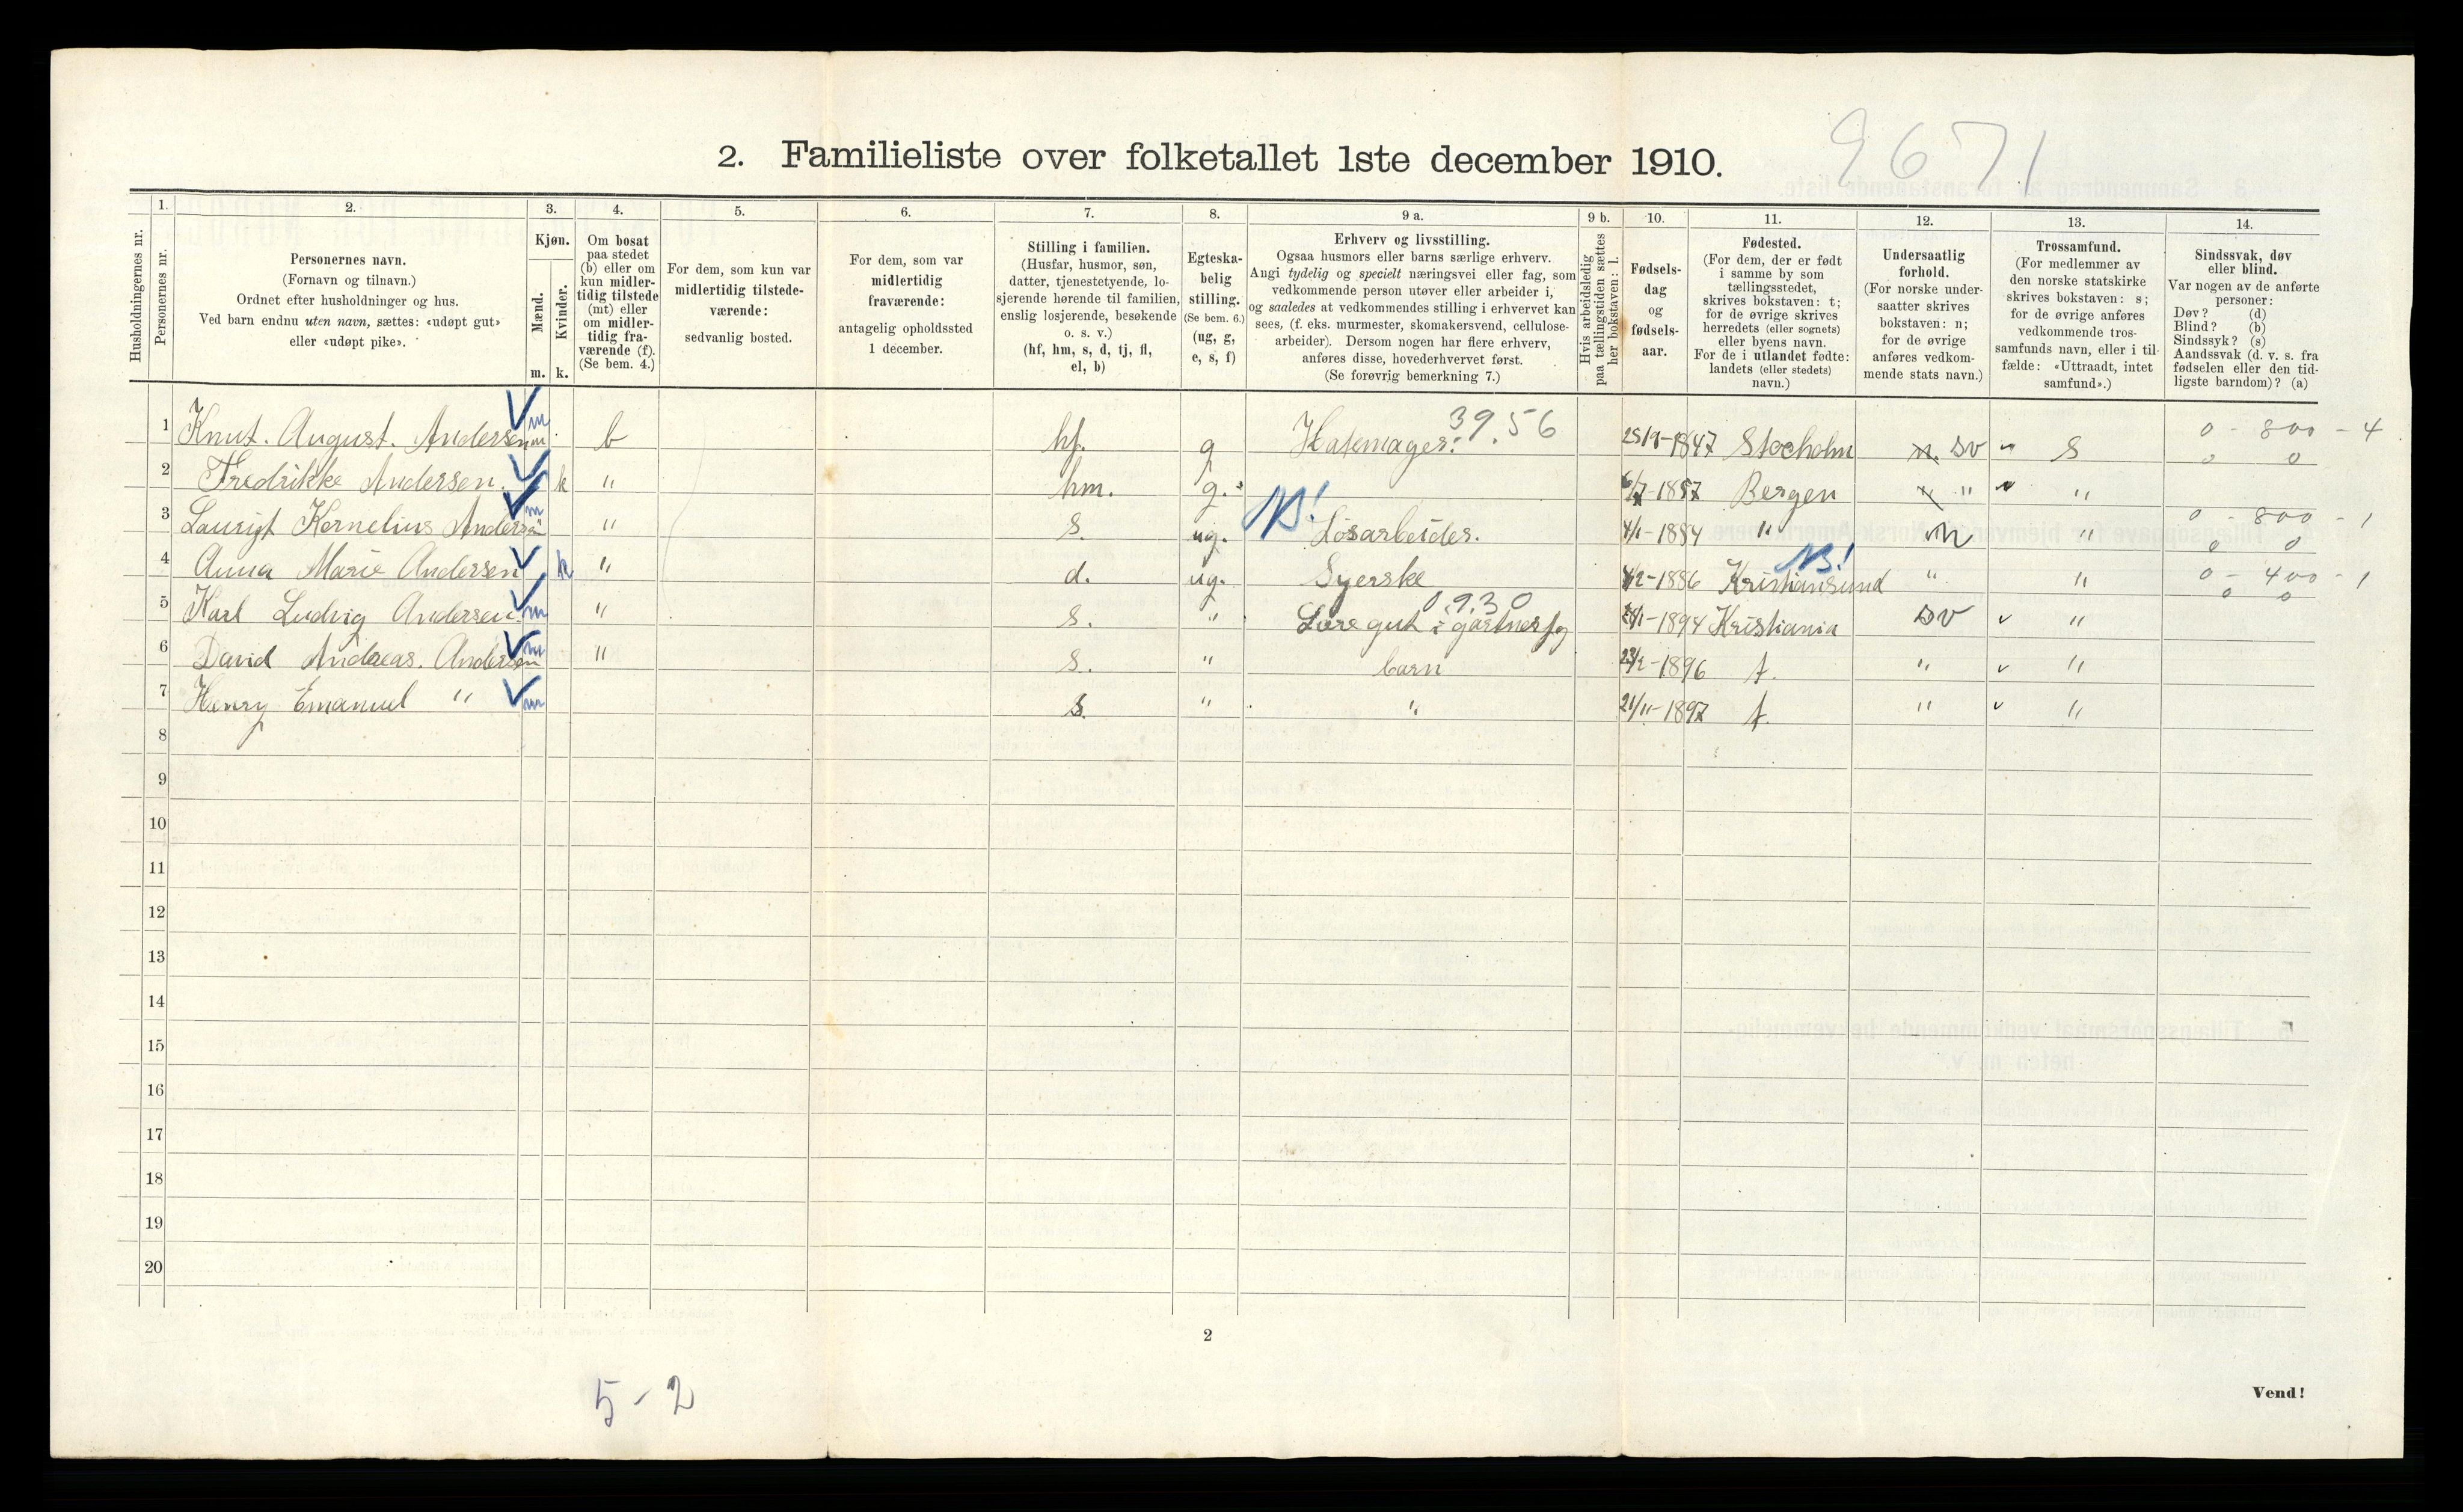 9671
2. Familieliste over folketallet 1ste december 1910.
1. 2. 3. 4. 5. 6. 7. 8. 9 a. 9 b. 10. 11. 12. 13. 14.
Husholdningernes nr.
Personernes nr.
Personernes navn.
(Fornavn og tilnavn.)
Ordnet efter husholdninger og hus.
Ved barn endnu uten navn, sættes: «udøpt gut»
eller «udøpt pike».
Kjøn.
Mænd.
m.
Kvinder.
k.
Om bosat
paa stedet
(b) eller om
kun midler-
tidig tilstede
(mt) eller
om midler-
tidig fra-
værende (f).
(Se bem. 4.)
For dem, som kun var
midlertidig tilstede-
værende:
sedvanlig bosted.
For dem, som var
midlertidig
fraværende:
antagelig opholdssted
1 december.
Stilling i familien.
(Husfar, husmor, søn,
datter, tjenestetyende, lo-
sjerende hørende til familien,
enslig losjerende, besøkende
o. s. v.)
(hf, hm, s, d, tj, fl,
el, b)
Egteska-
belig
stilling.
(Se bem. 6.)
(ug, g,
e, s, f)
Erhverv og livsstilling.
Ogsaa husmors eller barns særlige erhverv.
Angi tydelig og specielt næringsvei eller fag, som
vedkommende person utøver eller arbeider i,
og saaledes at vedkommendes stilling i erhvervet kan
sees, (f. eks. murmester, skomakersvend, cellulose-
arbeider). Dersom nogen har flere erhverv,
anføres disse, hovederhvervet først.
(Se forøvrig bemerkning 7.)
Hvis arbeidsledig
paa tællingstiden sættes
her bokstaven: l.
Fødsels-
dag
og
fødsels-
aar.
Fødested.
(For dem, der er født
i samme by som
tællingsstedet,
skrives bokstaven: t;
for de øvrige skrives
herredets (eller sognets)
eller byens navn.
For de i utlandet fødte:
landets (eller stedets)
navn.)
Undersaatlig
forhold.
(For norske under-
saatter skrives
bokstaven: n;
for de øvrige
anføres vedkom-
mende stats navn.)
Trossamfund.
(For medlemmer av
den norske statskirke
skrives bokstaven: s;
for de øvrige anføres
vedkommende tros-
samfunds navn, eller i til-
fælde: «Uttraadt, intet
samfund».)
Sindssvak, døv
eller blind.
Var nogen av de anførte
personer:
Døv? (d)
Blind? (b)
Sindssyk? (s)
Aandssvak (d. v. s. fra
fødselen eller den tid-
ligste barndom)? (a)
39.56 0 - 800 - 4
1 Knut. August. Andersen m b hf. g 1847 Stocholm n. sv s 0 0
2 Fredrikke Andersen. k " hm. g. 6/7-1857 Bergen " "
NB! 0 - 800 - 1
3 Andersen m " s. ug. Løsarbeider. 4/1-1884 " n " 0 0
NB!
4 Anna Marie Andersen k " d. ug. Syerske 1886 Kristiansund " " 0 - 400 - 1
0.9.30 0 0
5 Karl Ludvig Andersen. m " s. " 1894 Kristiania sv "
6 David Andreas. Andersen m " s. " barn 23/2-1896 t. " "
7 Henry Emanuel " m s. " " 21/11-1897 t. " "
8
9
10
11
12
13
14
15
16
17
18
19
20
2
5-2
Vend!